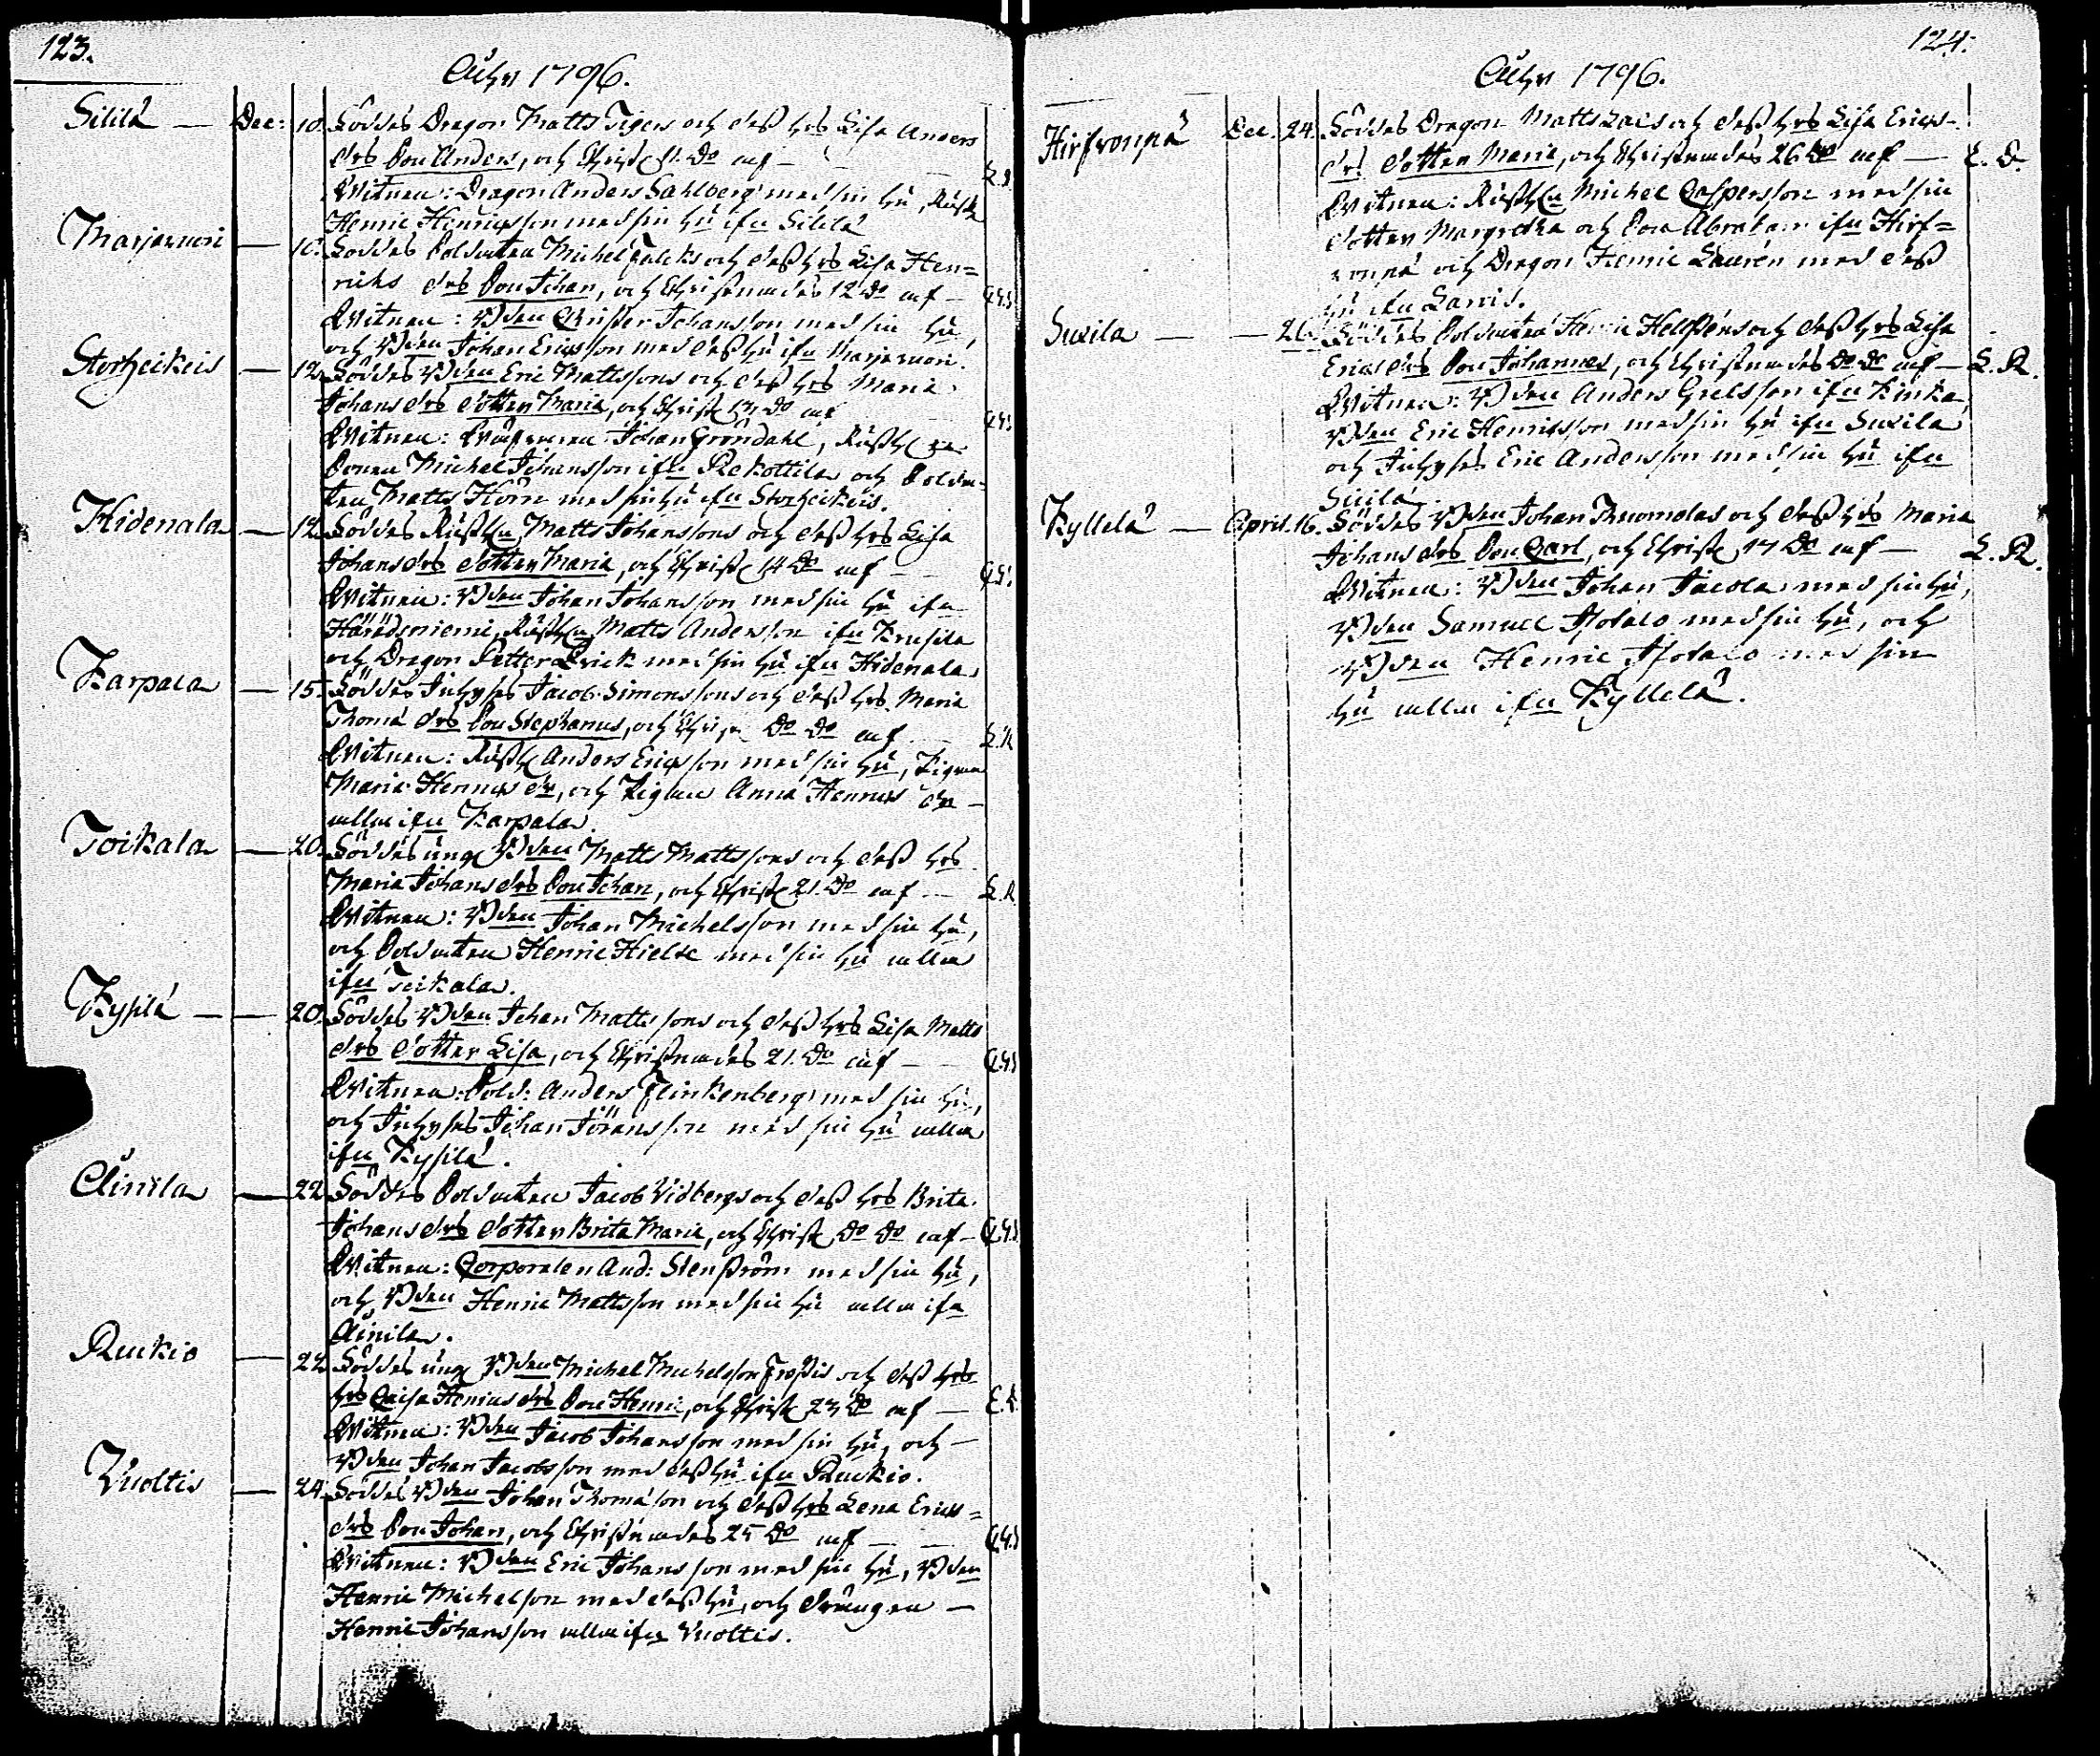 123.
Åhr 1796.
Sillilä — Dec: 10. Föddes Dragon Matts Tigers och dess hrs Lisa Anders
drs Son Anders, och Christ. d. Do af — L.R.
Witnen: Dragon Anders Sahlberg med sin hu, Rusth
Henric Henricsson med sin hu ifrn Sillilä
Marjanuori — 10. Föddes Soldaten Michel Falcks och dess hrs Lisa Hen=
richs drs Son Johan, och Christnades 12 Do af — G.H.S.
Witnen: Bden Christer Johansson med sin hu
och Bden Johan Ericsson med dess hu ifrn Marjanuori.
Storheickeis — 12. Föddes Bden Eric Mattssons och dess hrs Maria
Johans drs dotter Maria, och Christ. 13 Do af G.H.S.
Witnen: Johan Gröndahl, Rusth
Sonen Michel Johansson ifrn Rekottila och Solda=
ten Matts Horn med sin hu ifrn Storheickeis.
Hidenala — 12. Föddes Rusthn Matts Johanssons och dess hrs Lisa
Johans drs dotter Maria, och Christ. 14 Do af — G.H.S.
Witnen: Bden Johan Johansson med sin hu ifrn
Häradsniemi, Rusthn Matts Andersson ifrn Krusila
och Dragon Petter Qvick med sin hu ifrn Hidenala
Karpala — 15. Föddes Inhyses Jacob Simonssons och dess hrs Maria
Thomæ drs Son Stephanus, och Christn Do Do af L.R.
Witnen: Rusth Anders Ericsson med sin hu, Pigan
Maria Henrics dr, och Pigan Anna Henrics dr —
alla ifrn Karpala.
Toikala — 20. Föddes ung Bden Matts Mattssons och dess hrs
Maria Johans drs Son Johan, och Christ. 21. Do af — L.R.
Witnen: Bden Johan Michelsson med sin hu,
och Soldaten Henric Hielte med sin hu alla
ifrn Toikala.
Kysilä — 20. Föddes Bden Johan Mattssons och dess hrs Lisa Matts
drs dotter Lisa, och Christnades 21. Do af — G.H.S.
Witnen: Sold: Anders Flinkenberg med sin hu,
och Inhyses Johan Jöransson med sin hu alla
ifrn Kysilä.
Äinila — 22. Föddes Soldaten Jacob Vidbergs och dess hrs Brita
Johans drs dotter Brita Maria, och Christ. Do Do af — G.H.S.
Witnen: Corporalen And: Stenström med sin hu,
och Bden Henric Mattsson med sin hu alla ifrn
Äinila.
Ruckio — 22. Föddes ung Bden Michel Michelsson och dess hrs
hrs Caisa Henrics drs Son Henric, och Christ. 23 Do af — L.R.
Witnen: Bden Jacob Johansson med sin hu, och —
Bden Johan Jacobsson med dess hu ifrn Ruckio.
Vuoltis — 24. Föddes Bden Johan Thomæson och dess hrs Lena Erics=
drs Son Johan, och Christnades 25 Do af — G.H.S.
Witnen: Bden Eric Johansson med sin hu, Bden
Henric Michelson med dess hu, och drängen —
Henric Johansson alla ifrn Vuoltis.
124.
Åhr 1796.
Hirfvonpä Dec. 24. Föddes Dragon Matts och dess hrs Lisa Erics=
drs dotter Maria, och Christnades 26 Do af — L.R.
Witnen: Rusthn Michel Caspersson med sin
dotter Margretha och Son Abraham ifrn Hirf=
vonpä och Dragon Henric Laurén med dess
hu ifrn Sarvis.
Suxila — 26. Föddes Soldaten Henric Hellsténs och dess hrs Lisa
Erics drs Son Johannes, och Christnades Do Do af — L.R.
Witnen: Bden Anders Grelsson ifrn Kinka
Bden Eric Henricsson med sin hu ifrn Suxila
och Inhyses Eric Andersson med sin hu ifrn
Suxila
Kyllelä — April. 16. Föddes Bden Johan Tuomolas och dess hrs Maria
Johans drs Son Carl, och Christ. 17 Do af — L.R.
Witnen: Bden Johan Jacola med sin hu,
Bden Samuel Isotalo med sin hu, och
Bden Henric Isotalo med sin
hu alla ifrn Kyllelä.